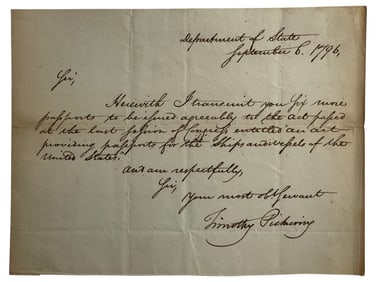 Department of State
September 6. 1796,
Sir,
Herewith I transmit you Six more
passports to be issued agreeably to the act passed
at the last session of Congress entitled an act
providing passports for the Ships and vessels of the
United States."
and am respectfully,
Sir,
Your most obt Servant
Timothy Pickering